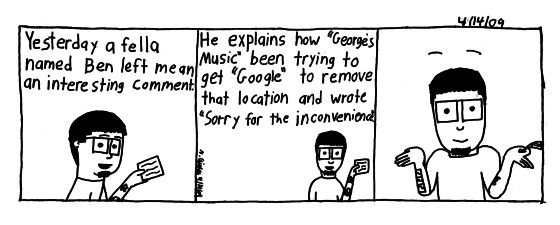 4/14/09
Yesterday a fella
named Ben left mean
an interesting comment
He explains how "George's
Music" been trying to
get "Google" to remove
that location and wrote
"Sorry for the inconvenience"